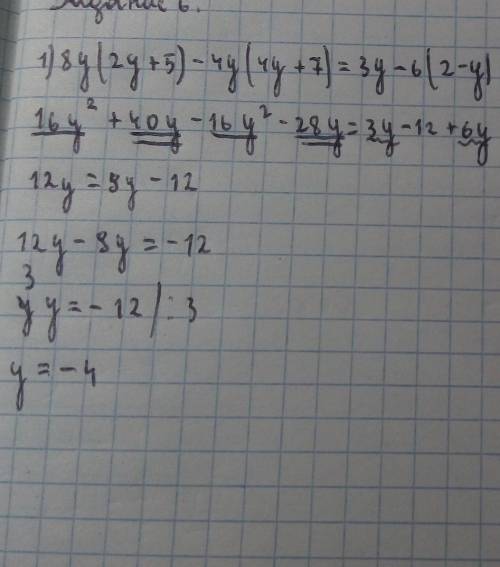 Задание 6.
1) 8y(2y+5)-4y(4y+7)=3y-6(2-y)
16y²+40y-16y²-28y=3y-12+6y
12y=9y-12
12y-9y=-12
3
y y=-12/:3
y=-4